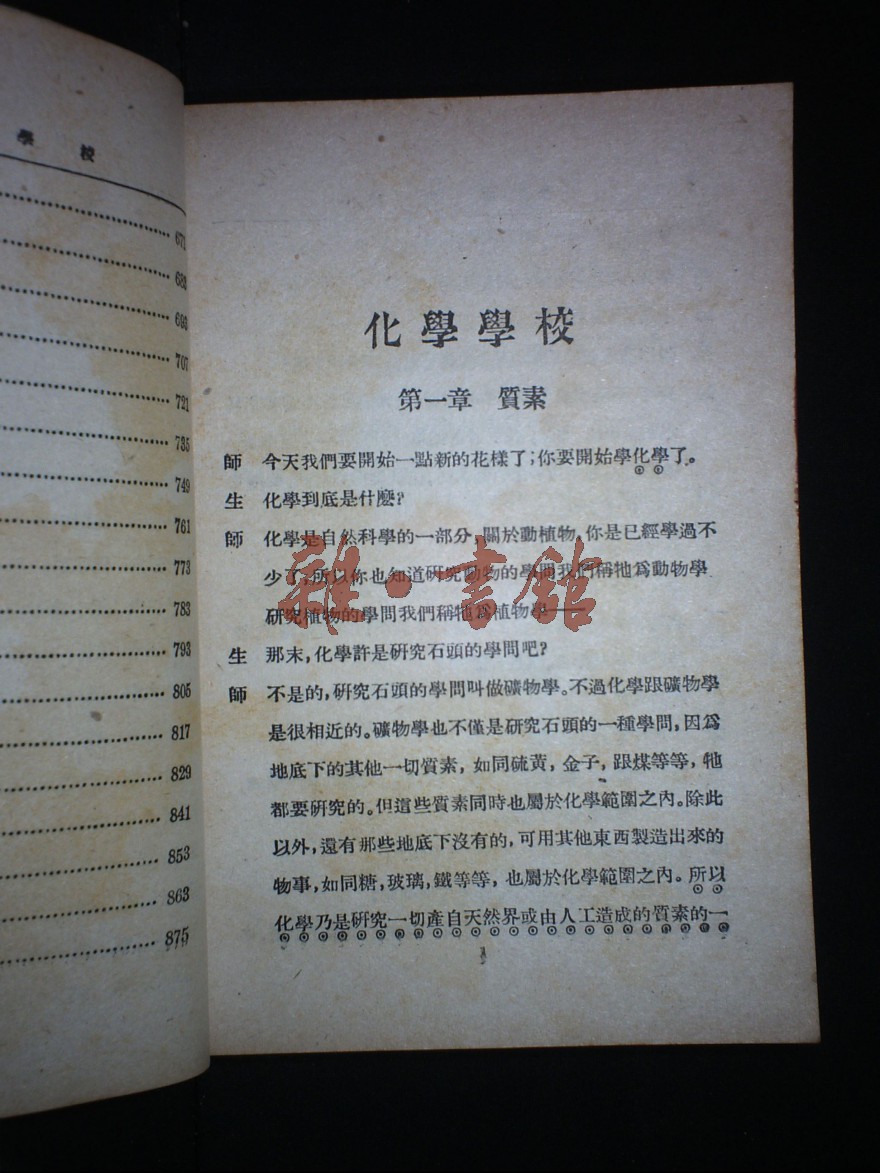 學 校
671
683
693
707
721
735
749
761
773
783
793
805
817
829
841
853
863
875
化學學校
第一章 質素
師 今天我們要開始一點新的花樣了;你要開始學化學了。
生 化學到底是什麼?
師 化學是自然科學的一部分,關於動植物,你是已經學過不
少了,所以你也知道研究動物的學問我們稱牠爲動物學
研究植物的學問我們稱牠爲植物學——
生 那末,化學許是研究石頭的學問吧?
師 不是的,研究石頭的學問叫做礦物學。不過化學跟礦物學
是很相近的。礦物學也不僅是研究石頭的一種學問,因爲
地底下的其他一切質素,如同硫黄,金子,跟煤等等,牠
都要研究的。但這些質素同時也屬於化學範圍之內。除此
以外,還有那些地底下沒有的,可用其他東西製造出來的
物事,如同糖,玻璃,鐵等等,也屬於化學範圍之內。所以
化學乃是研究一切產自天然界或由人工造成的質素的一
雜·書館